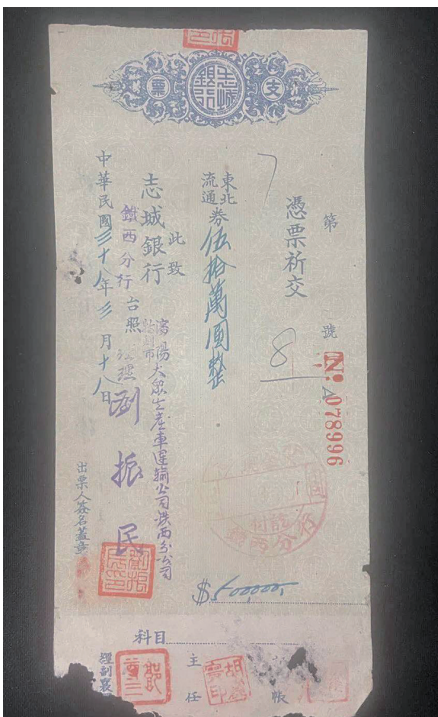 支
志城
銀行
票
第
號
№ A 078996
憑票祈交
8
東北
流通
券伍拾萬圓整
此致
志城銀行
鐵西分行
台照
瀋陽大眾生產車運輸公司鐵西分公司
劉振民
中華民國三十八年三月十八日
出票人簽名蓋章
$500,000.
科目
主
任
帳